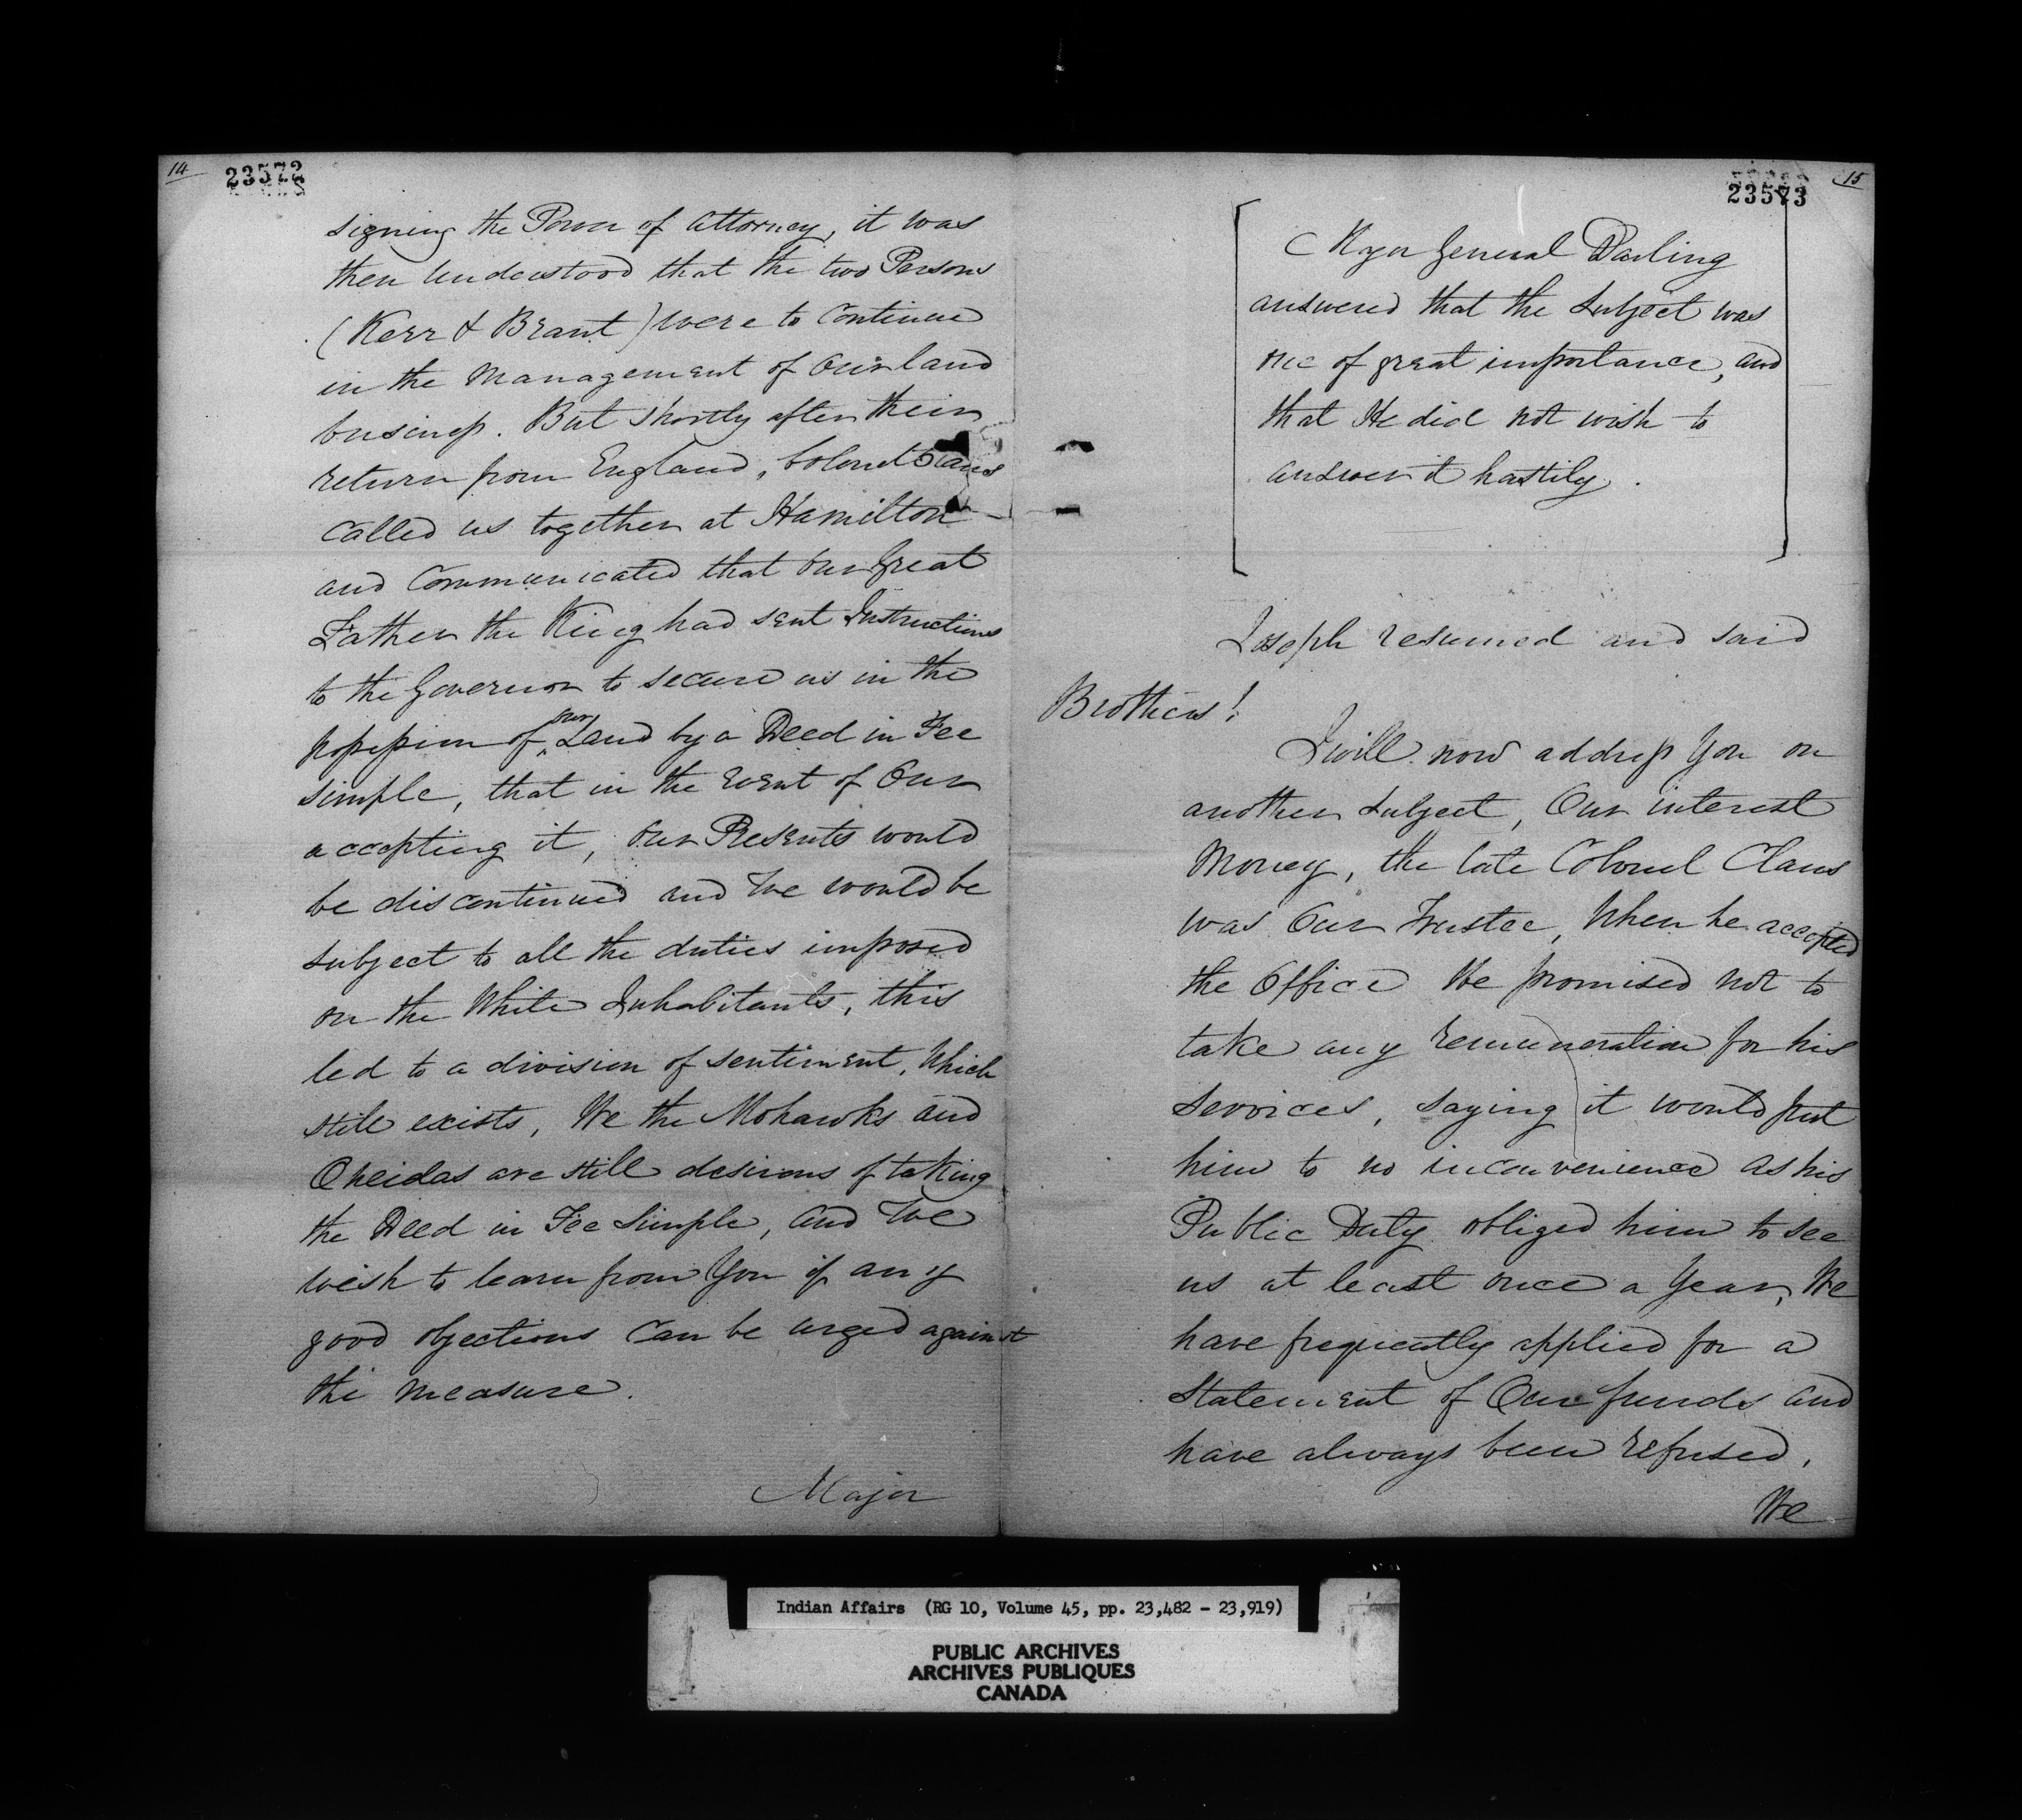 14
23572
signing the Power of Attorney, it was
then Understood that the two Persons
(Kerr & Brant) were to Continue
in the Management of Our land
business. But shortly after their
return from England, Colonel Claus
Called us together at Hamilton
and Communicated that Our Great
Father the King had sent Instructions
to the Governor to secure us in the
our
possession of ^ Land by a Deed in Fee
Simple, that in the event of Our
accepting it, Our Presents would
be discontinued and We would be
subject to all the duties imposed
on the White Inhabitants, this
led to a division of sentiment, Which
still exists, We the Mohawks and
Oneidas are still desirous of taking
the Deed in Fee Simple, and We
wish to learn from You if any
good objections Can be urged against
the Measure.
Major
15
23573
Major General Darling
answered that the Subject was
one of great importance, and
that He did not wish to
answer it hastily.
Joseph resumed and said
Brothers!
I will now address You on
another Subject, Our interest
Money, the late Colonel Claus
was Our Trustee, When he accepted
the Office He promised not to
take any remuneration for his
Services, saying it would put
him to no inconvenience as his
Public Duty obliged him to see
us at least once a Year, We
have frequently applied for a
Statement of Our funds and
have always been refused,
We
Indian Affairs (RG 10, Volume 45, pp. 23,482 - 23,919)
PUBLIC ARCHIVES
ARCHIVES PUBLIQUES
CANADA